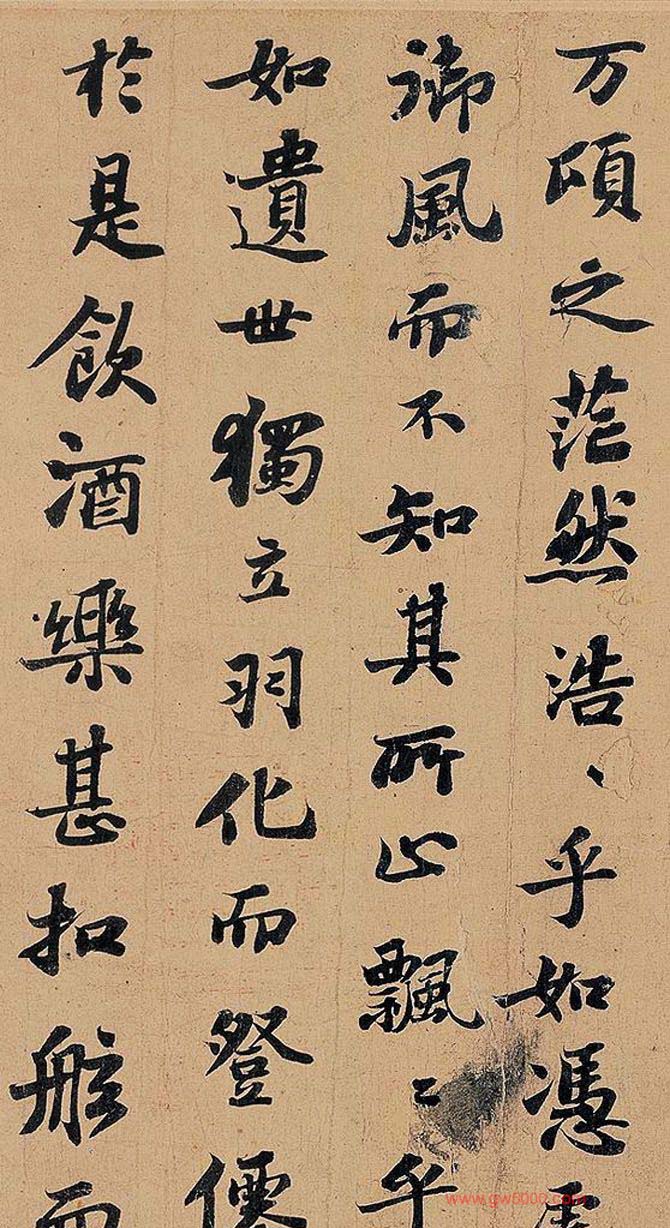 万頃之茫然浩、乎如憑虛
御風而不知其所止飄〻乎
如遺世獨立羽化而登僊
於是飲酒樂甚扣舷而
www.gw6000.com